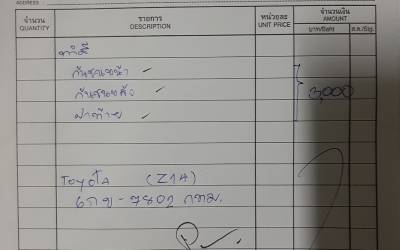 ADDRESS
จำนวน รายการ หน่วยละ จำนวนเงิน
QUANTITY DESCRIPTION UNIT PRICE AMOUNT
บาท/Baht ส.ต./Stg.
ทำสี
กันชนหน้า
กันชนหลัง 3,000
ฝาท้าย
TOYOTA (ZIA)
7802 กทม.